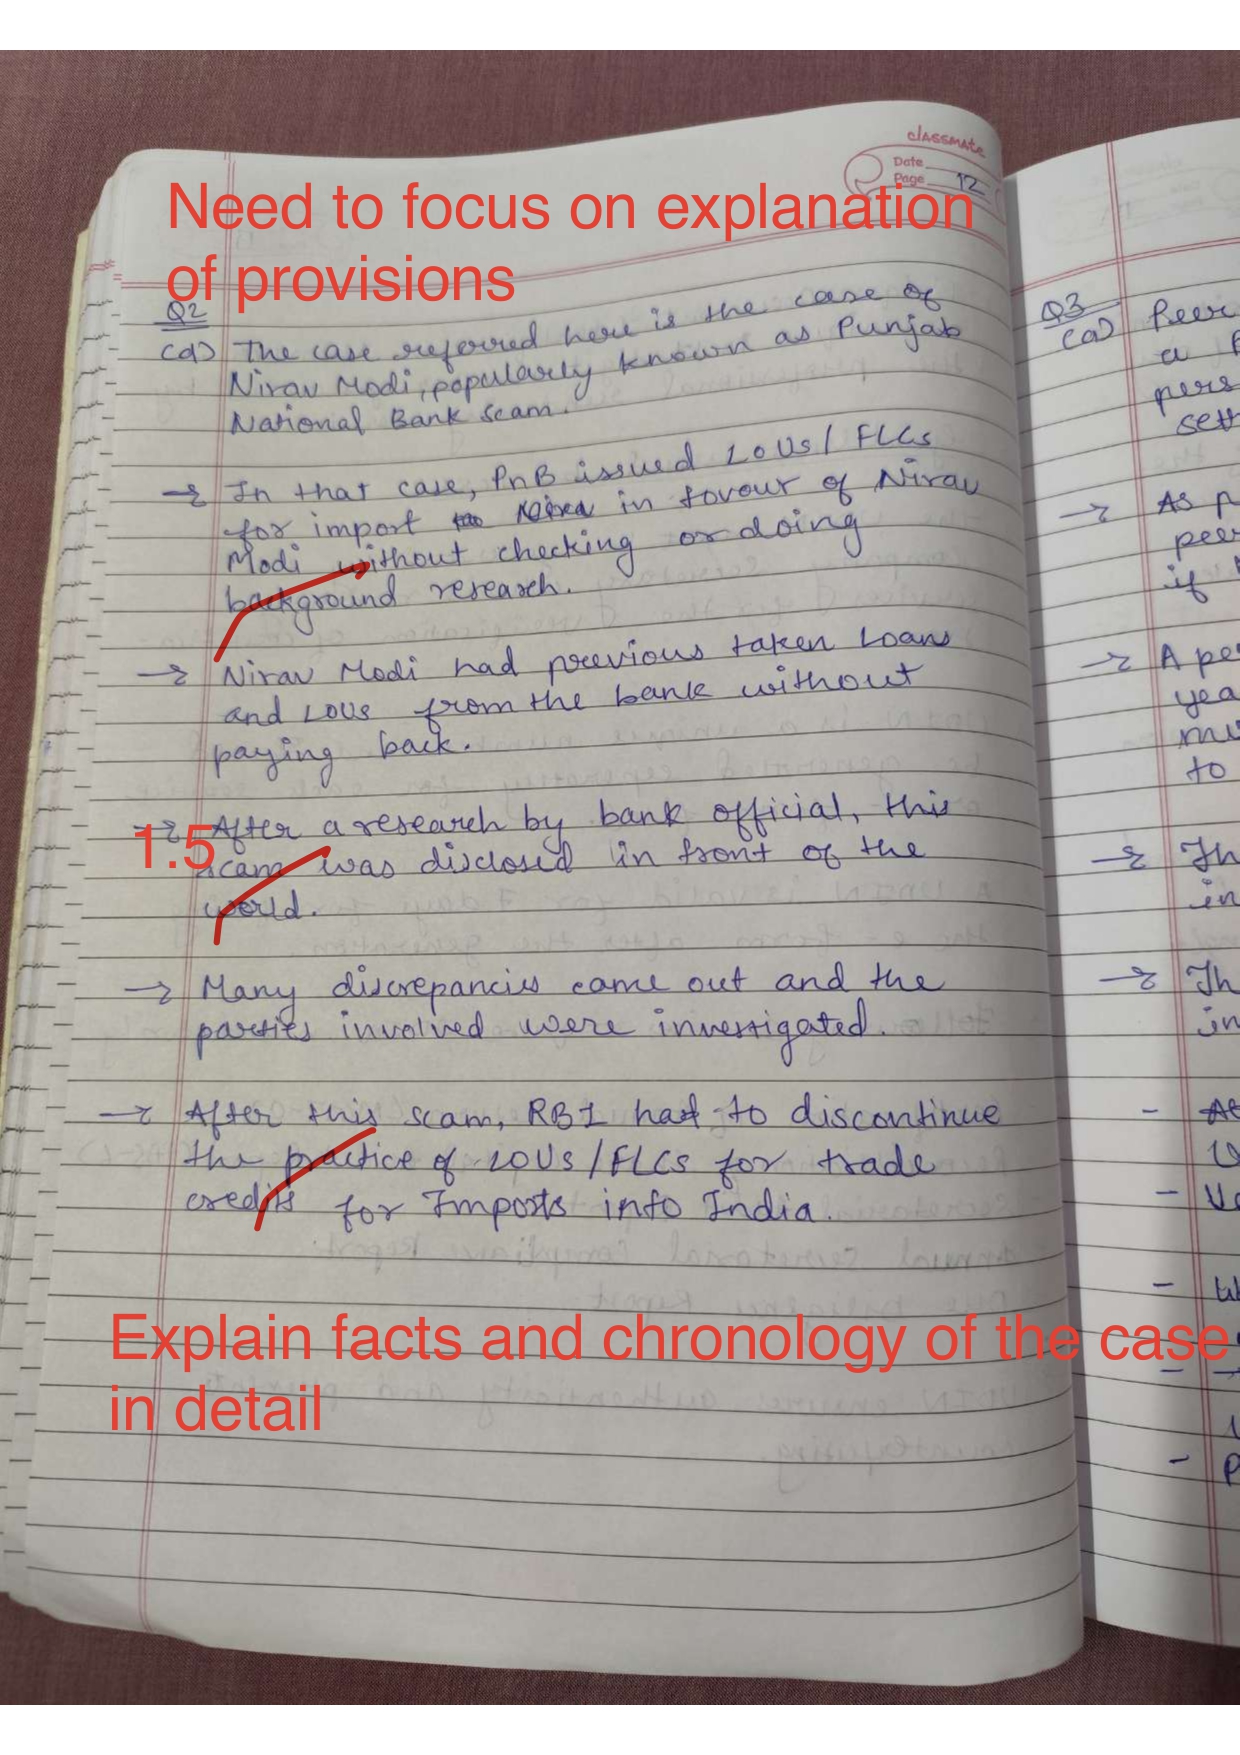 classmate
Date
Page 12
Need to focus on explanation
of provisions
Q2
(d) The case referred here is the case of
Nirav Modi, popularly known as Punjab
National Bank scam.
→ In that case, PnB issued LOUs / FLCs
for import in favour of Nirav
Modi without checking or doing
background research.
→ Nirav Modi had previous taken Loans
and LOUs from the bank without
paying back.
→ After a research by bank official, this
scam was disclosed in front of the
world.
1.5
→ Many discrepancies came out and the
parties involved were investigated.
→ After this scam, RBI had to discontinue
the practice of LOUs / FLCs for trade
credits for Imports into India.
Explain facts and chronology of the case
in detail
Q3
(a) Peer
a
pers
sett
→ As p
peer
if
→ A pe
yea
mu
to
→ Th
in
→ Th
in